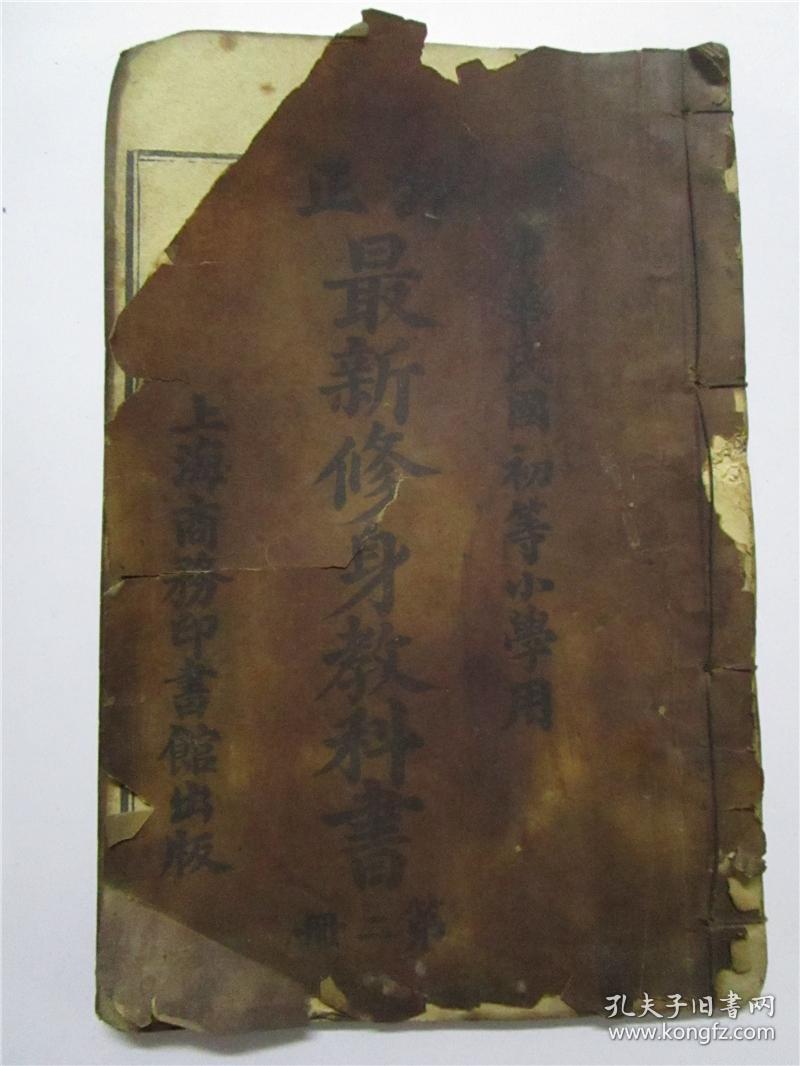 正
中華民國初等小學用
最新修身教科書
第二冊
上海商務印書館出版
孔夫子旧書网
www.kongfz.com